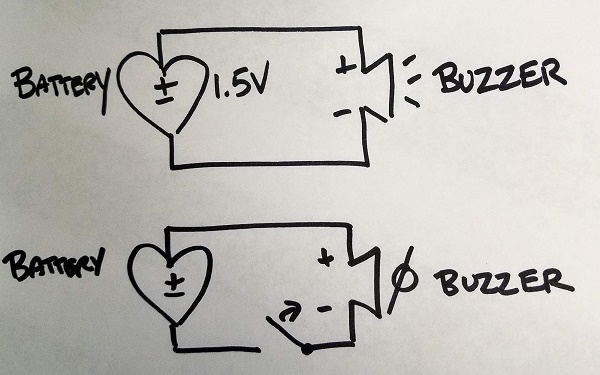 BATTERY ± 1.5V + - BUZZER
BATTERY ± + - Ø BUZZER